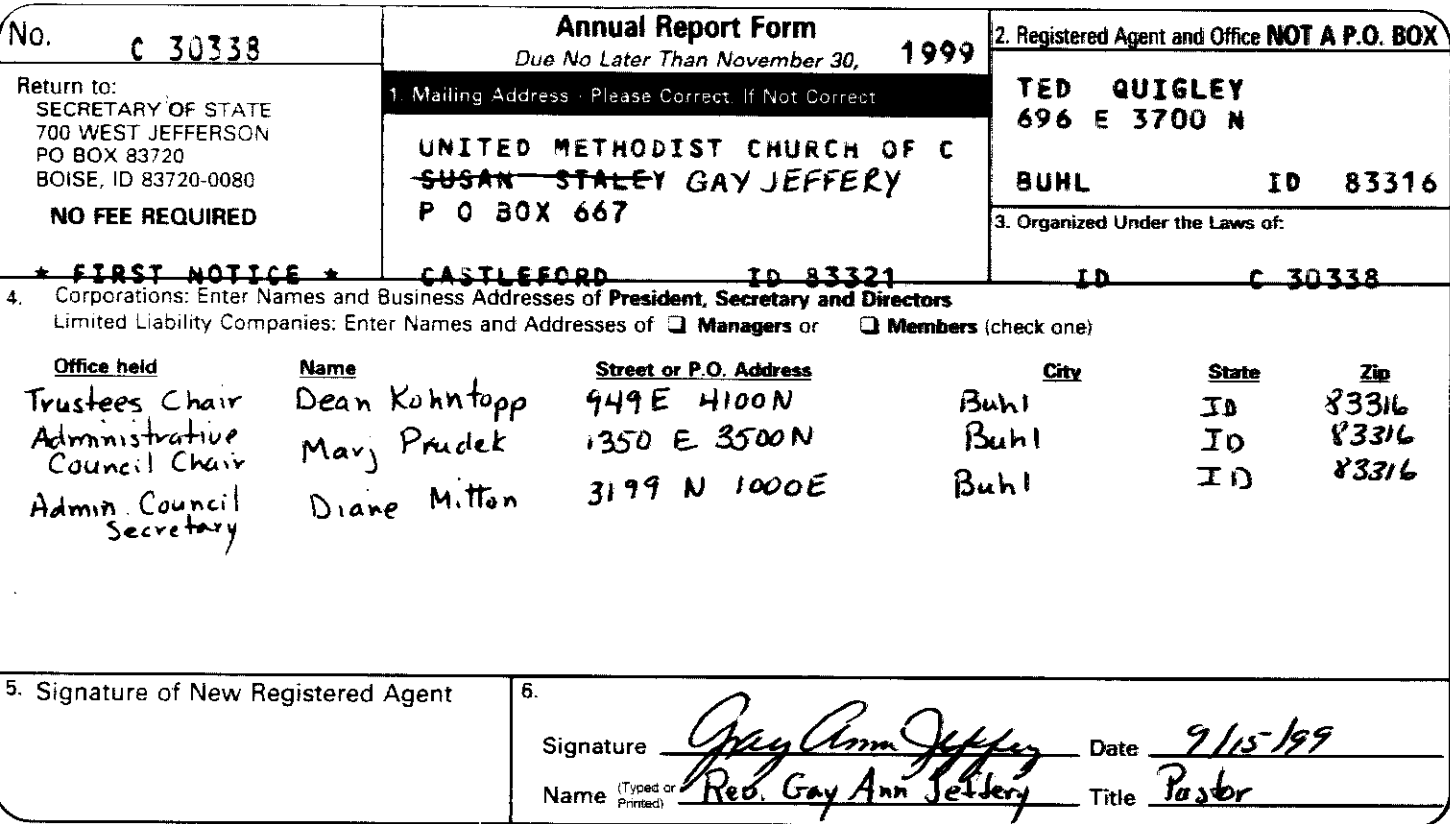 No. C 30338
Return to:
SECRETARY OF STATE
700 WEST JEFFERSON
PO BOX 83720
BOISE, ID 83720-0080
NO FEE REQUIRED
* FIRST NOTICE *
Annual Report Form
Due No Later Than November 30, 1999
1. Mailing Address - Please Correct If Not Correct
UNITED METHODIST CHURCH OF C
SUSAN STALEY GAY JEFFERY
P O BOX 667
CASTLEFORD ID 83321
2. Registered Agent and Office NOT A P.O. BOX
TED QUIGLEY
696 E 3700 N
BUHL ID 83316
3. Organized Under the Laws of:
ID C 30338
4. Corporations: Enter Names and Business Addresses of President, Secretary and Directors
Limited Liability Companies: Enter Names and Addresses of ❑ Managers or ❑ Members (check one)
Office held Name Street or P.O. Address City State Zip
Trustees Chair Dean Kohntopp 949 E 4100 N Buhl ID 83316
Administrative Marj Prudek 1350 E 3500 N Buhl ID 83316
Council Chair
Admin. Council Diane Mitton 3199 N 1000 E Buhl ID 83316
Secretary
5. Signature of New Registered Agent
6.
Signature Gay Ann Jeffery Date 9/15/99
Name (Typed or Printed) Rev. Gay Ann Jeffery Title Pastor